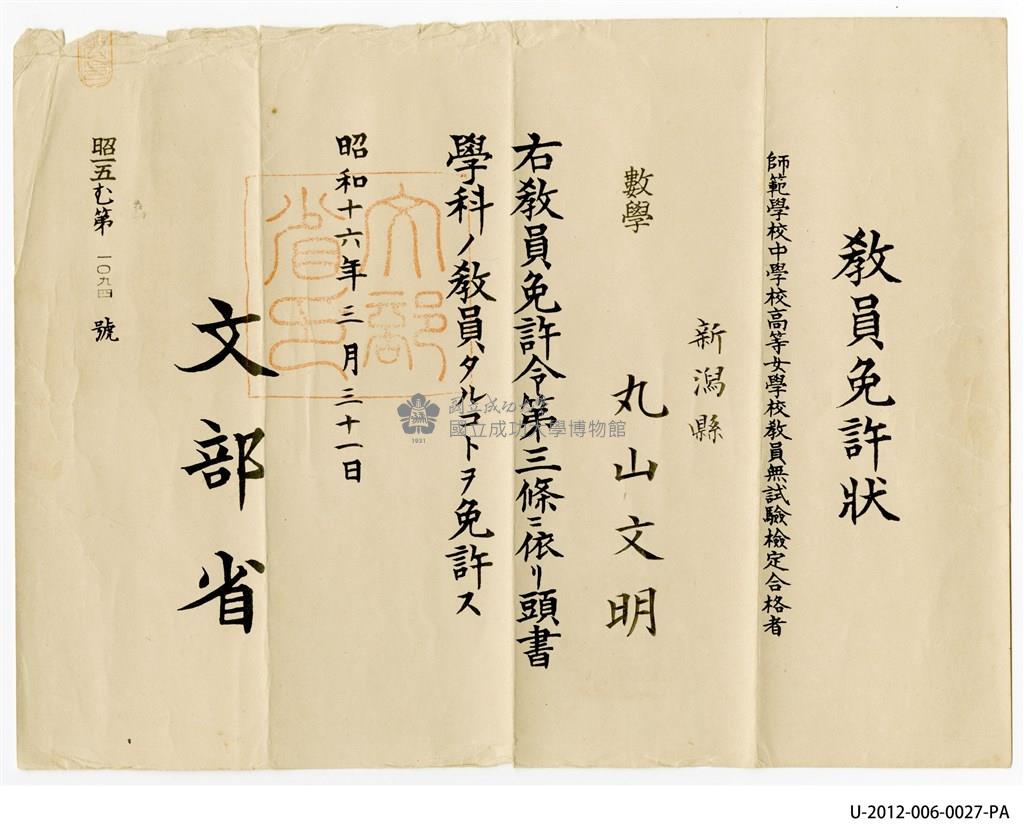 教員免許狀
師範學校中學校高等女學校教員無試驗檢定合格者
新潟縣
丸山文明
數學
右教員免許令第三條ニ依リ頭書
學科ノ教員タルコトヲ免許ス
昭和十六年三月三十一日
文部省
昭一五む第一〇九四號
文部
省印
國立成功大學
國立成功大學博物館
1931
U-2012-006-0027-PA